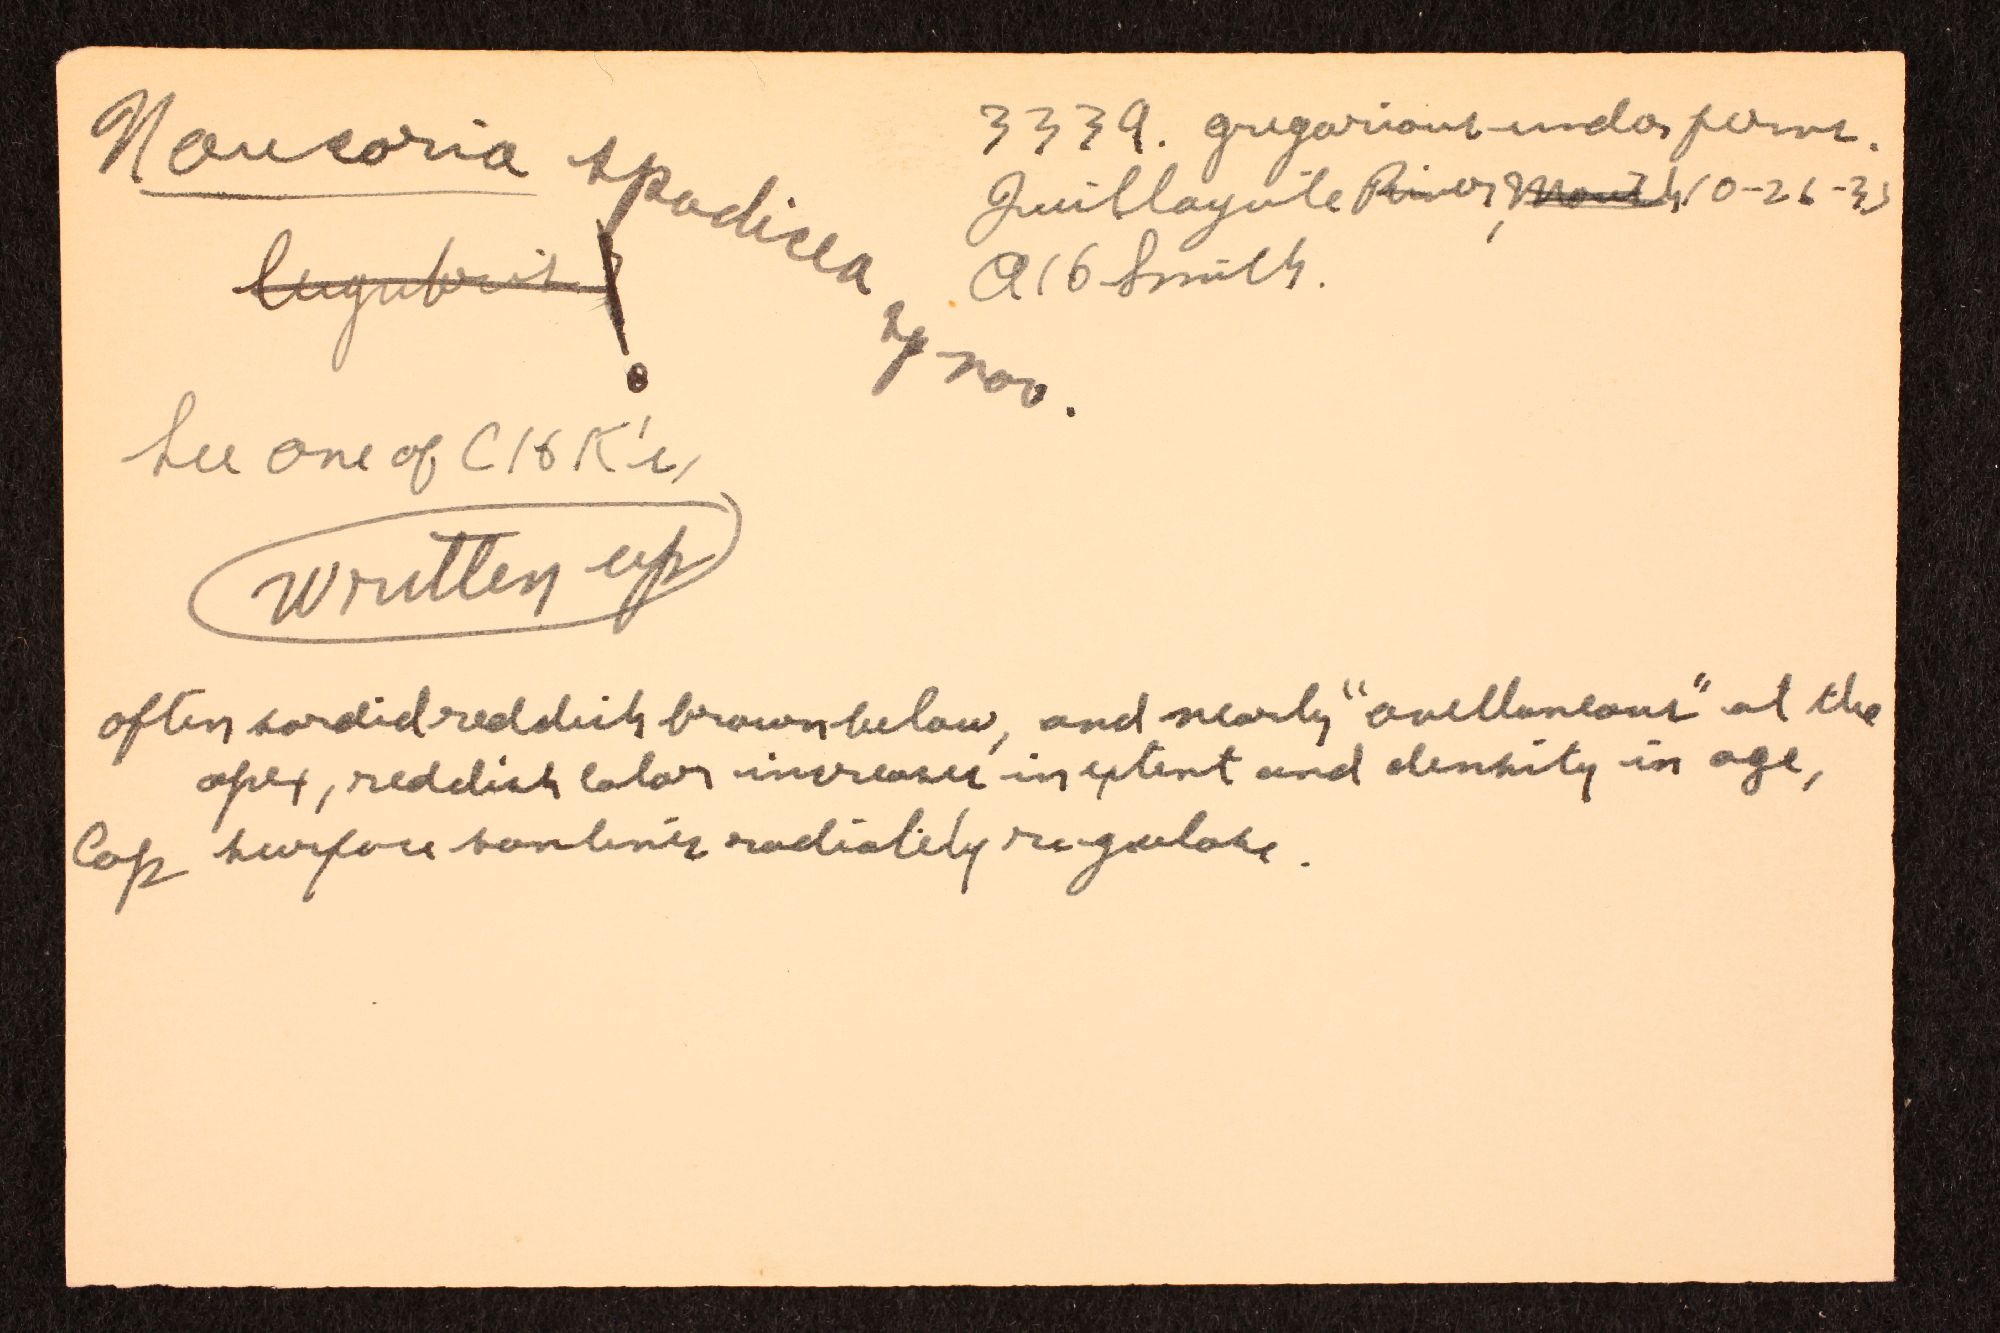 Naucoria spadicea sp nov.
lugubris !
See one of CHK's,
Written up
3339. gregarious under ferns.
Quillayute River, Mouth 10-26-35
AH Smith.
often sordid reddish brown below, and nearly "avellaneous" at the
apex, reddish color increases in extent and density in age,
Cap surface sometimes radiately rugulose.